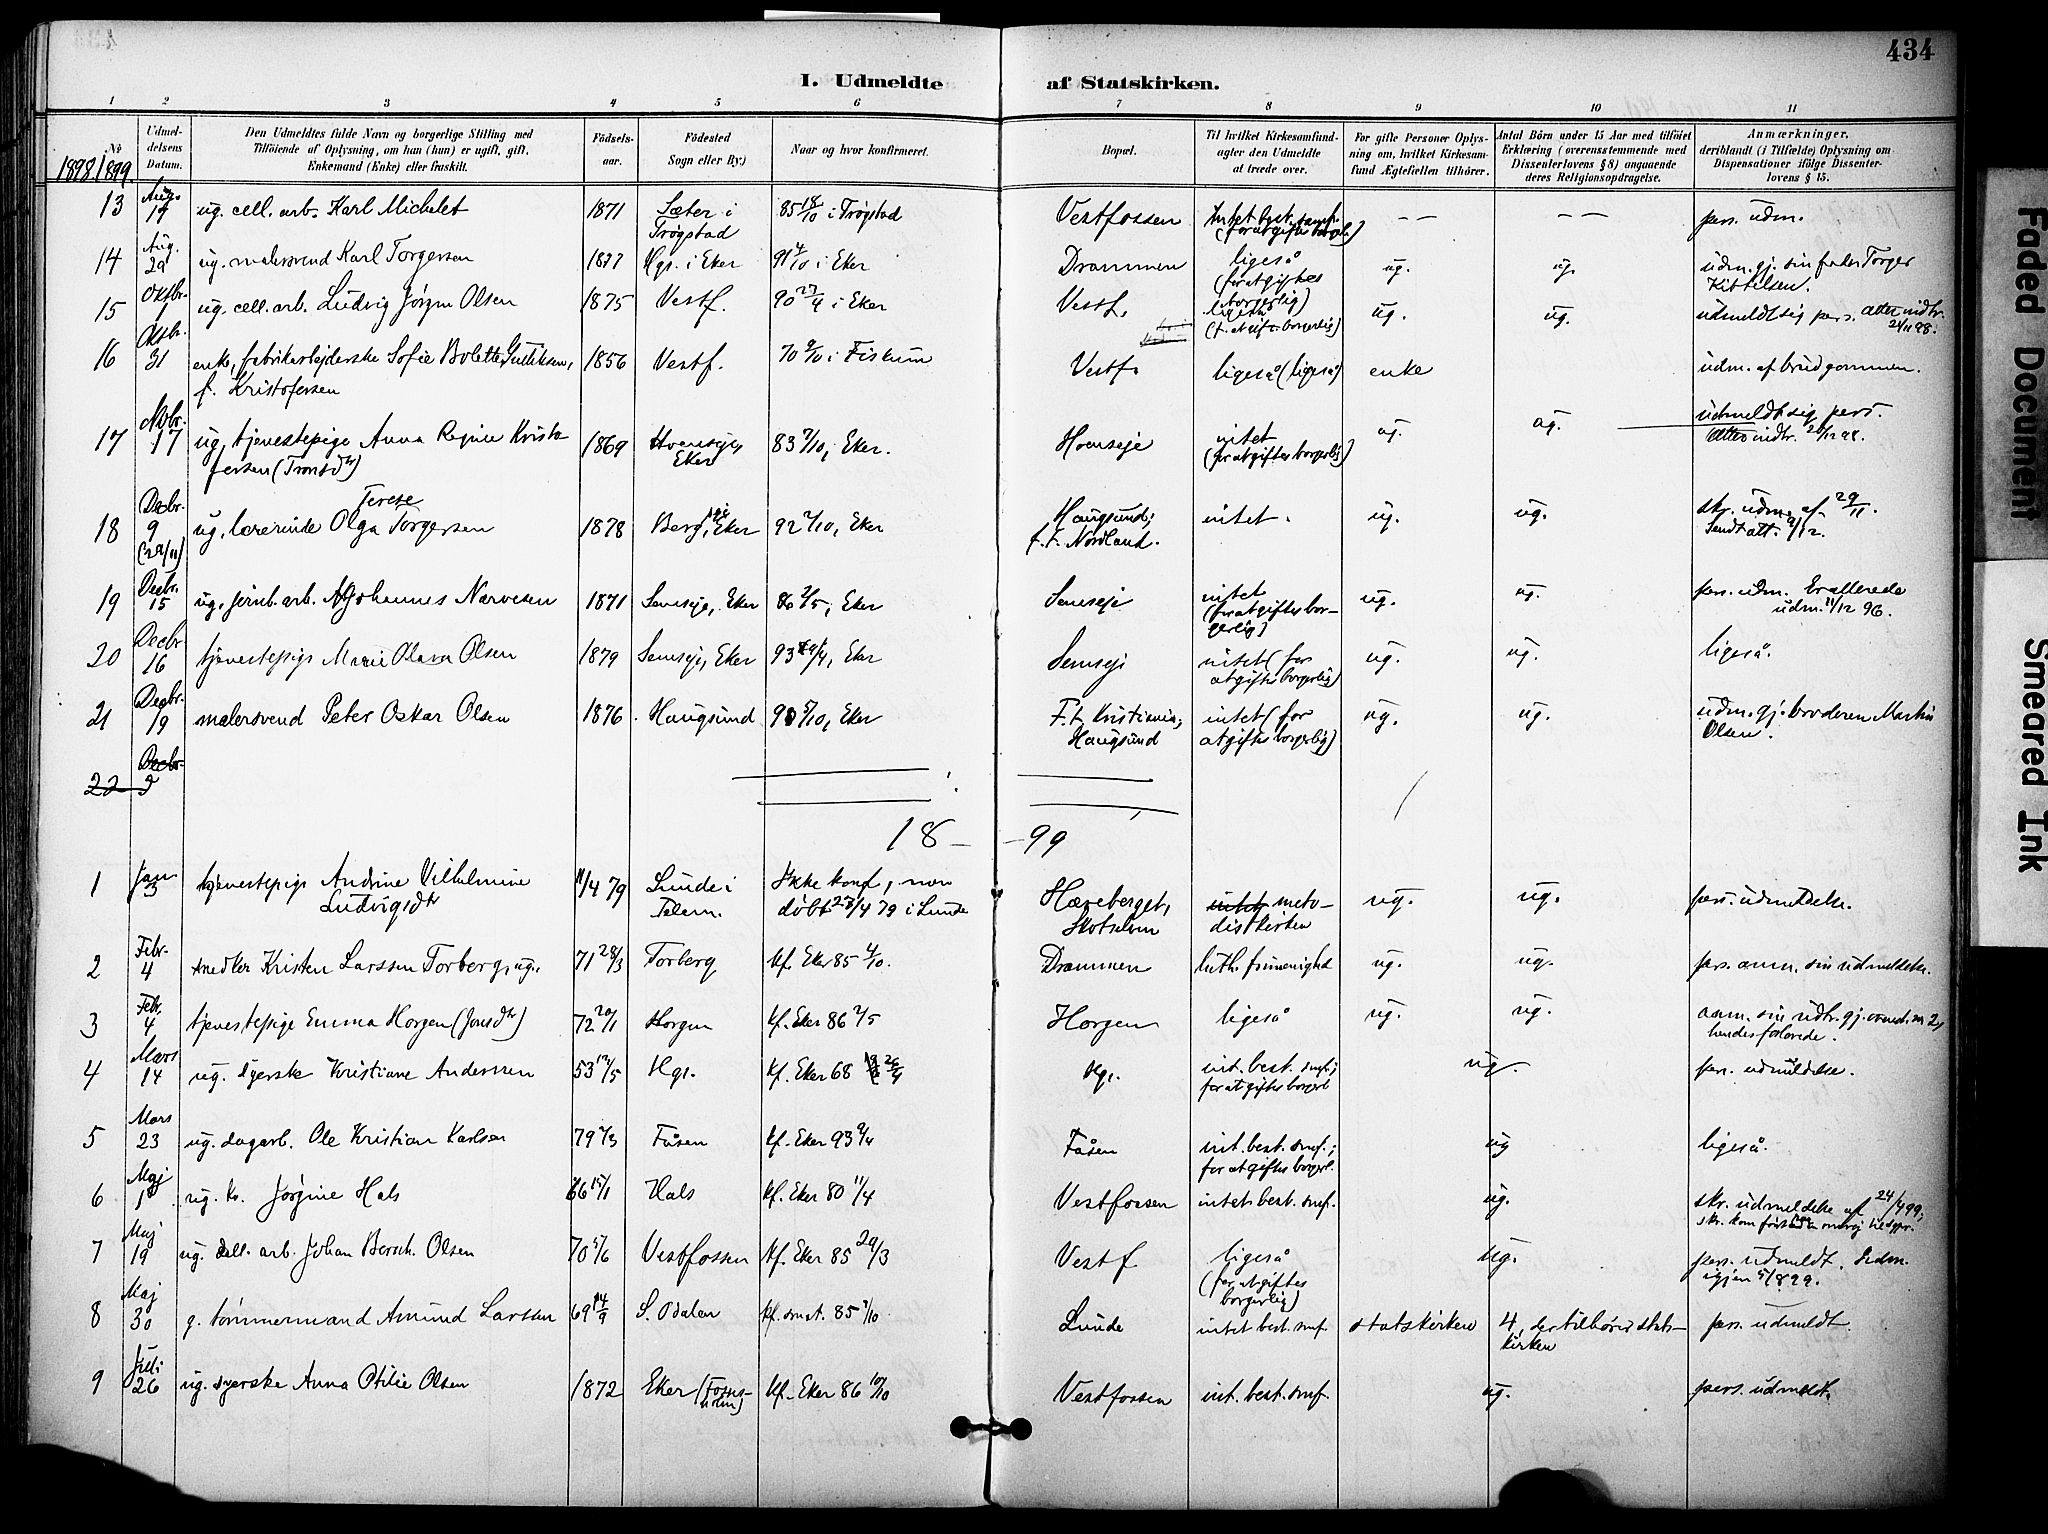 434
I. Udmeldte af Statskirken.
1 2 3 4 5 6 7 8 9 10 11
№ 1898/1899
Udmel-
delsens
Datum.
Den Udmeldtes fulde Navn og borgerlige Stilling med
Tilföiende af Oplysning, om han (hun) er ugift, gift,
Enkemand (Enke) eller fraskilt.
Födsels-
aar.
Födested
Sogn eller By.)
Naar og hvor konfirmeret.
Bopæl.
Til hvilket Kirkesamfund-
agter den Udmeldte
at træde over.
For gifte Personer Oplys-
ning om, hvilket Kirkesam-
fund Ægtefællen tilhörer.
Antal Börn under 15 Aar med tilföiet
Erklæring (overensstemmende med
Dissenterlovens § 8) angaaende
deres Religionsopdragelse.
Anmærkninger,
deriblandt (i Tilfælde) Oplysning om
Dispensationer ifölge Dissenter-
lovens § 15.
13 Aug. 19 ug. cell. arb. Karl Michelet 1871 Sæter i Trøgstad 85 18/10 i Trøgstad Vestfossen Intet best. samf. (for at giftes borgerl.) — — — — pers. udm.
14 Aug. 29 ug. malersvend Karl Torgersen 1877 Hgs. i Eker 91 4/10 i Eker Drammen ligeså (for at giftes borgerlig) ug. ug. udm. gj. sin fader Torger Kittelsen.
15 Oktbr. ug. cell. arb. Ludvig Jørgen Olsen 1875 Vestf. 90 27/4 i Eker Vestf. ligeså (f. at gifte borgerlig) ug. ug. udmeldt sig pers. Atter indtr. 24/11 98.
16 Oktbr. 31 enke, fabrikarbejderske Sofie Bolette Gulliksen, f. Kristofersen 1856 Vestf. 70 9/10 i Fiskum Vestf. ligeså (ligeså) enke udm. af brudgommen.
17 Novbr. 17 ug. tjenestepige Anna Regine Kristofersen (Tronsdtr) 1869 Hoenseje, Eker 83 7/10, Eker. Hoenseje intet (for at giftes borgerlig) ug. ug. udmeldt sig pers. Atter indtr. 20/12 98.
18 Decbr. 9 (29/11) ug. lærerinde Olga Terese Torgersen 1878 Berg, Eker 92 2/10, Eker Haugsund; f. t. Nordland. intet. ug. ug. skr. udm. af 29/11. Sendt att. 9/12.
19 Decbr. 15 ug. jernb. arb. Johannes Narvesen 1871 Semseje, Eker 86 2/5, Eker Semseje intet (for at giftes borgerlig) ug. ug. pers. udm. Er allerede udm. 11/12 96.
20 Decbr. 16 tjenestepige Marie Olava Olsen 1879 Semseje, Eker 93 9/4, Eker Semseje intet (for at giftes borgerlig) ug. ug. ligeså.
21 Decbr. 19 malersvend Peter Oskar Olsen 1876 Haugsund 90 5/10, Eker F. t. Kristiania; Haugsund intet (for at giftes borgerlig) ug. ug. udm. gj. broderen Martin Olsen.
22 Decbr.
18 — — 99
1 Jan. 3 tjenestepige Andrine Vilhelmine Ludvigsdtr 11/4 79 Lunde i Telem. Ikke konf., men døbt 27/4 79 i Lunde Hæreberget, Skotselven intet metodistkirken ug. ug. pers. udmeldelse.
2 Febr. 4 snedker Kristen Larssen Torberg, ug. 71 28/3 Torberg kf. Eker 85 4/10. Drammen luth. frimenighed ug. ug. pers. anm. sin udmeldelse.
3 Febr. 4 tjenestepige Emma Horgen (Jonsdtr) 72 20/1 Horgen kf. Eker 86 2/5 Horgen ligeså ug. ug. anm. sin udtr. gj. ovend. nr 2, hendes forlovede.
4 Mars 14 ug. syerske Kristiane Andersen 53 17/5 Hgs. kf. Eker 68 26/4 Hgs. int. best. smf.; for at giftes borgerl ug. pers. udmeldelse.
5 Mars 23 ug. dagarb. Ole Kristian Karlsen 79 2/3 Fåsen kf. Eker 93 9/4 Fåsen int. best. smf.; for at giftes borgerl. ug ligeså.
6 Maj 1 ug. kv. Jørgine Hals 66 15/1 Hals kf. Eker 80 11/4 Vestfossen intet best. smf. ug. skr. udmeldelse af 24/4 99;
7 Maj 19 ug. cell. arb. Johan Bernh. Olsen 70 5/6 Vestfossen kf. Eker 85 29/3 Vestf ligeså (for at giftes borgerlig) ug. pers. udmeldt. Indm. igjen 5/8 99.
8 Maj 30 g. tømmermand Amund Larsen 69 14/9 S. Odalen kf. smst. 85 7/10. Lunde intet best. smf. statskirken 4, der tilhører statskirken pers. udmeldt.
9 Juli 26 ug. syerske Anna Otilie Olsen 1872 Eker (Fossesholm) kf. Eker 86 10/10 Vestfossen int. best. smf. ug. pers. udmeldt.
Faded Document
Smeared Ink